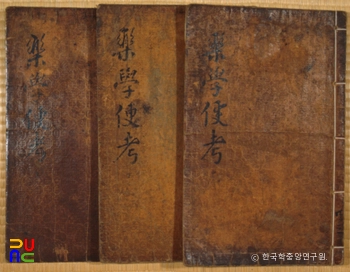 樂學便考
樂學便考
樂學便考
ⓒ 한국학중앙연구원